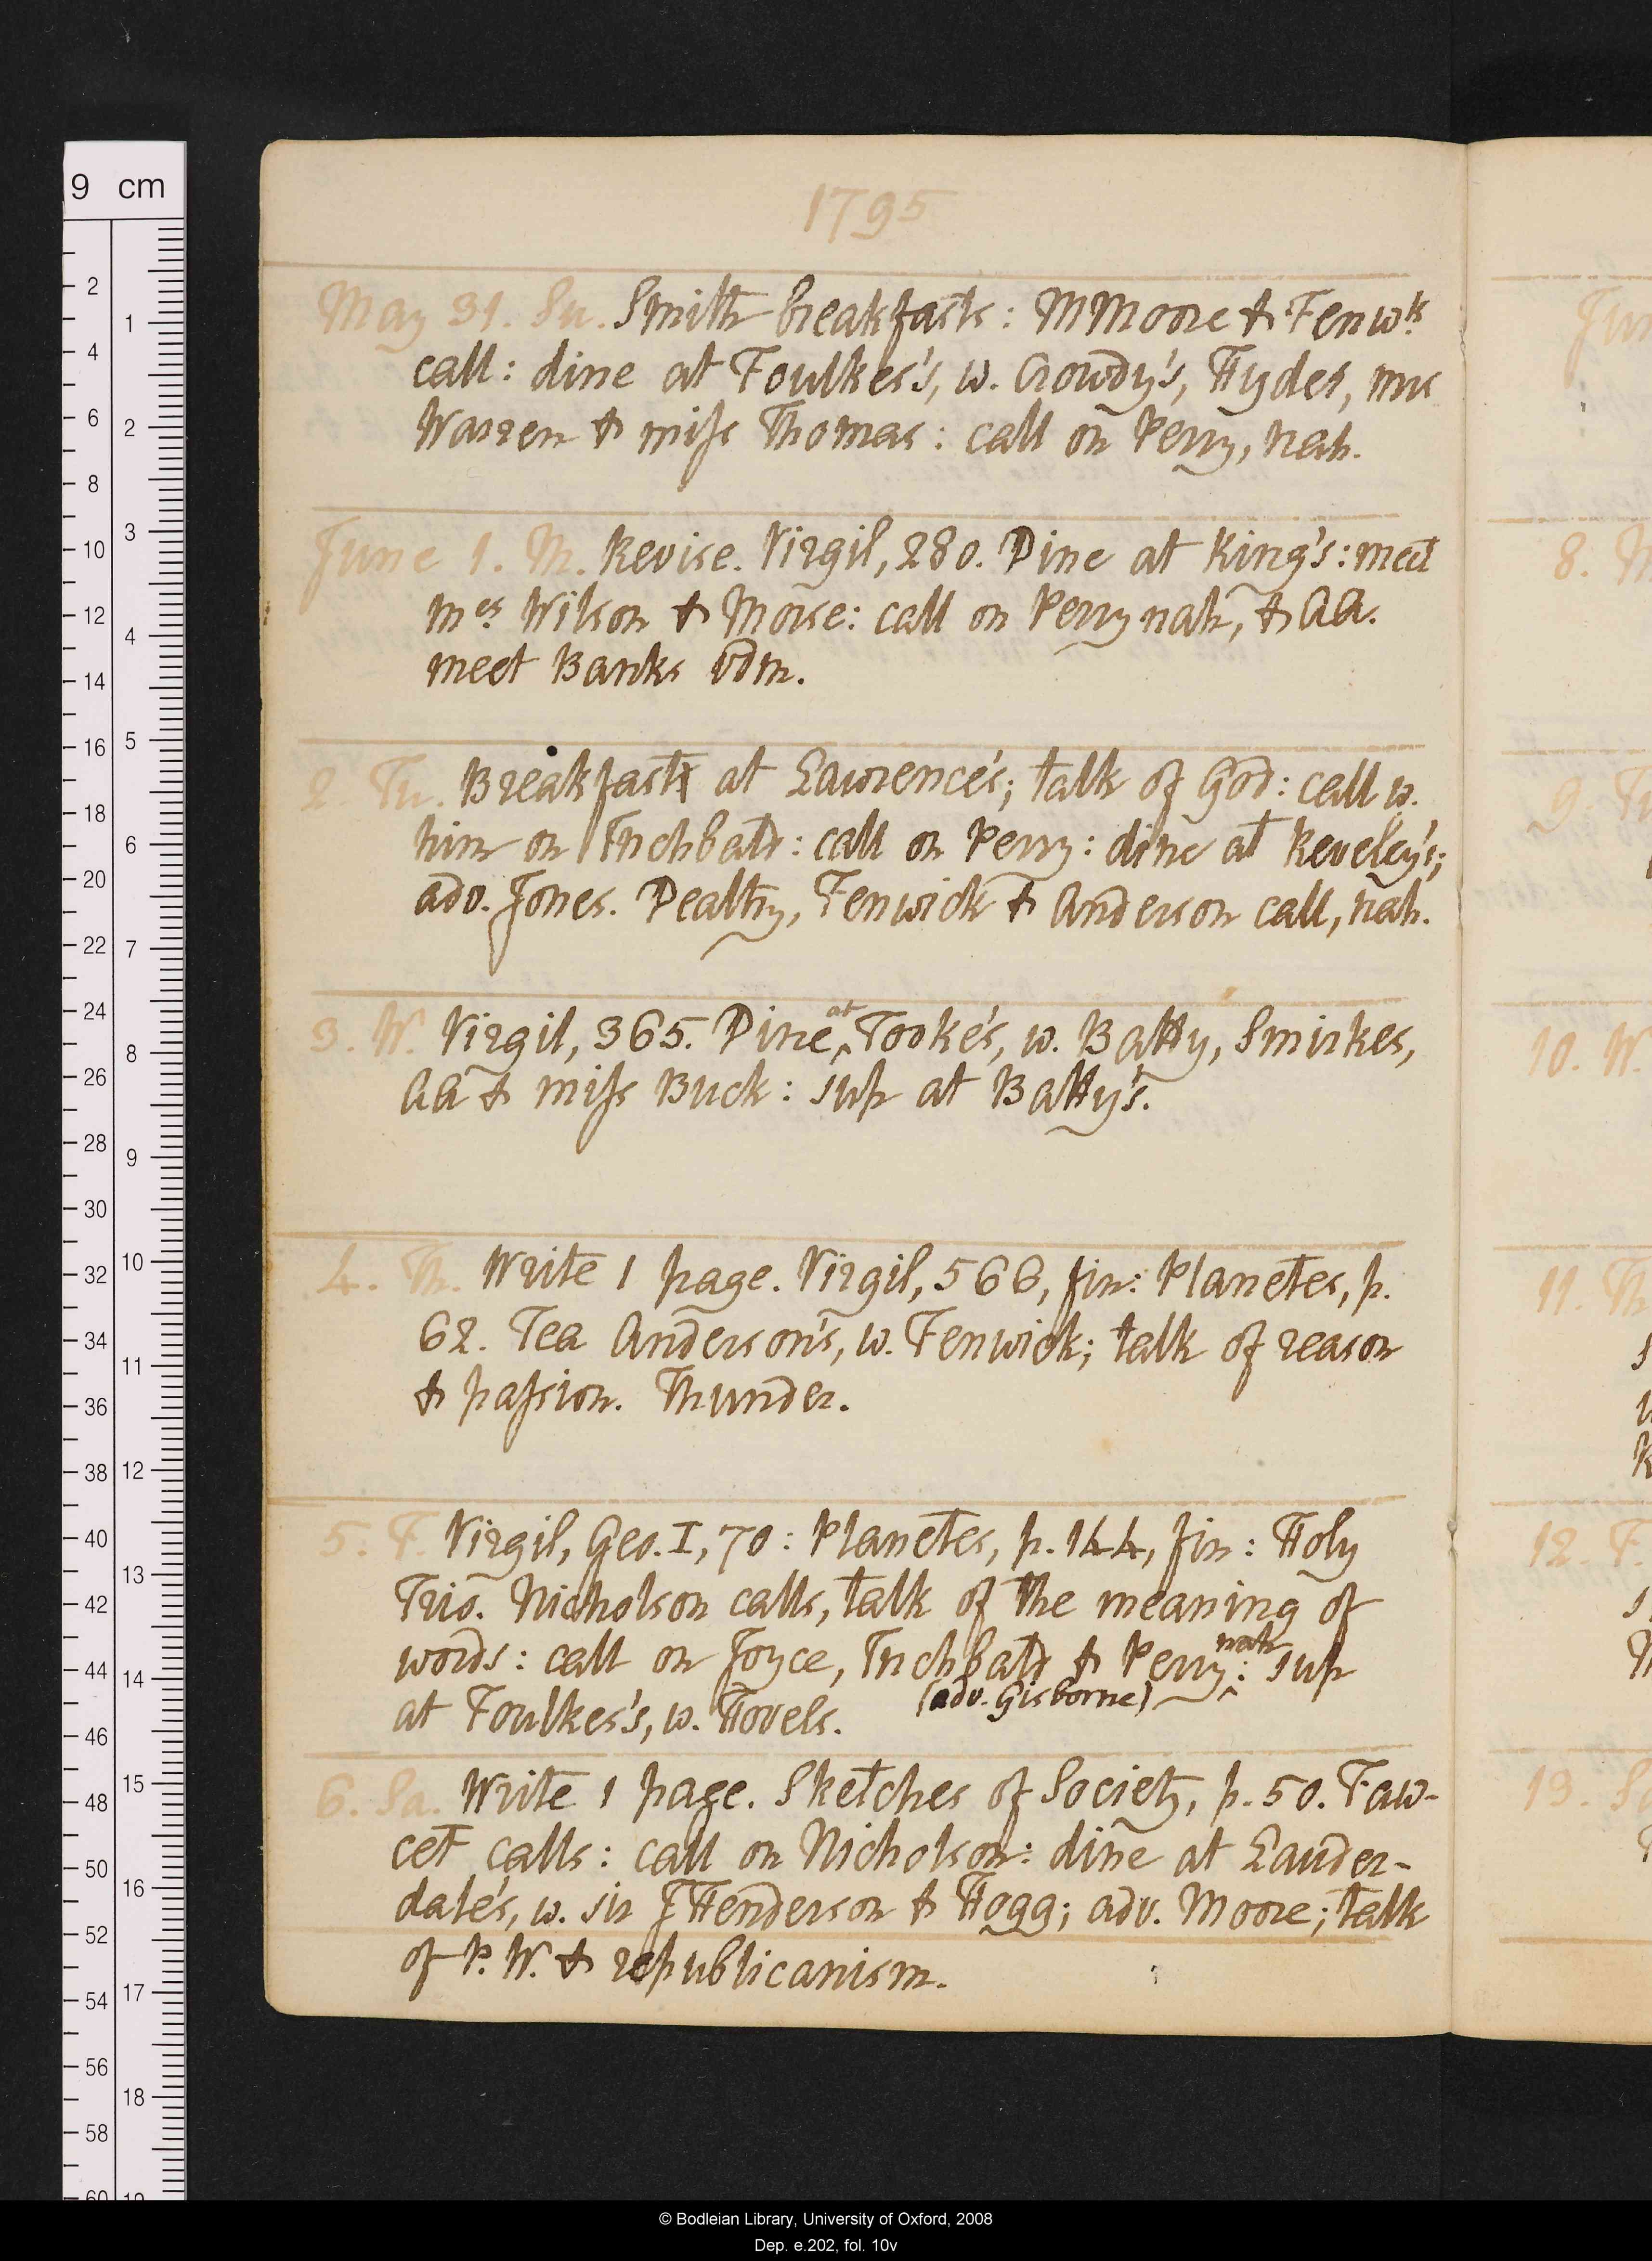 1795
May 31. Su. Smith breakfasts: M Moore & Fenwks
call: dine at Foulkes's, w. Crowdy's, Hydes, mrs
Warren & miſs Thomas: call on Perry, nah.
June 1. M. Revise. Virgil, 280. Dine at King's: meet
mes Wilson & Morse: call on Perry nah, & AA.
meet Banks vdm.
2. Tu. Breakfast at Lawrence's; talk of God: call w.
him on Inchbald: call on Perry: dine at Reveley's;
adv. Jones. Dealtry, Fenwick & Anderson call, nah.
3. W. Virgil, 365. Dine at Tooke's, w. Batty, Smirkes,
AA & miſs Buck: sup at Batty's.
4. Th. Write 1 page. Virgil, 566, fin: Planetes, p.
62. Tea Anderson's, w. Fenwick; talk of reason
& paſsion. Thunder.
5. F. Virgil, Geo. I, 70: Planetes, p. 144, fin: Holy
Trio. Nicholson calls, talk of the meaning of
words: call on Joyce, Inchbald & Perry nah: sup
(adv. Gisborne)
at Foulkes's, w. Hovels.
6. Sa. Write 1 page. Sketches of Society, p. 50. Faw-
cet calls: call on Nicholson: dine at Lauder-
dale's, w. sir J Henderson & Hogg; adv. Moore; talk
of P. W. & republicanism.
8.
9.
10. W.
11. Th
12. F.
13.
9 cm
2
4
6
8
10
12
14
16
18
20
22
24
26
28
30
32
34
36
38
40
42
44
46
48
50
52
54
56
58
60
1
2
3
4
5
6
7
8
9
10
11
12
13
14
15
16
17
18
© Bodleian Library, University of Oxford, 2008
Dep. e.202, fol. 10v